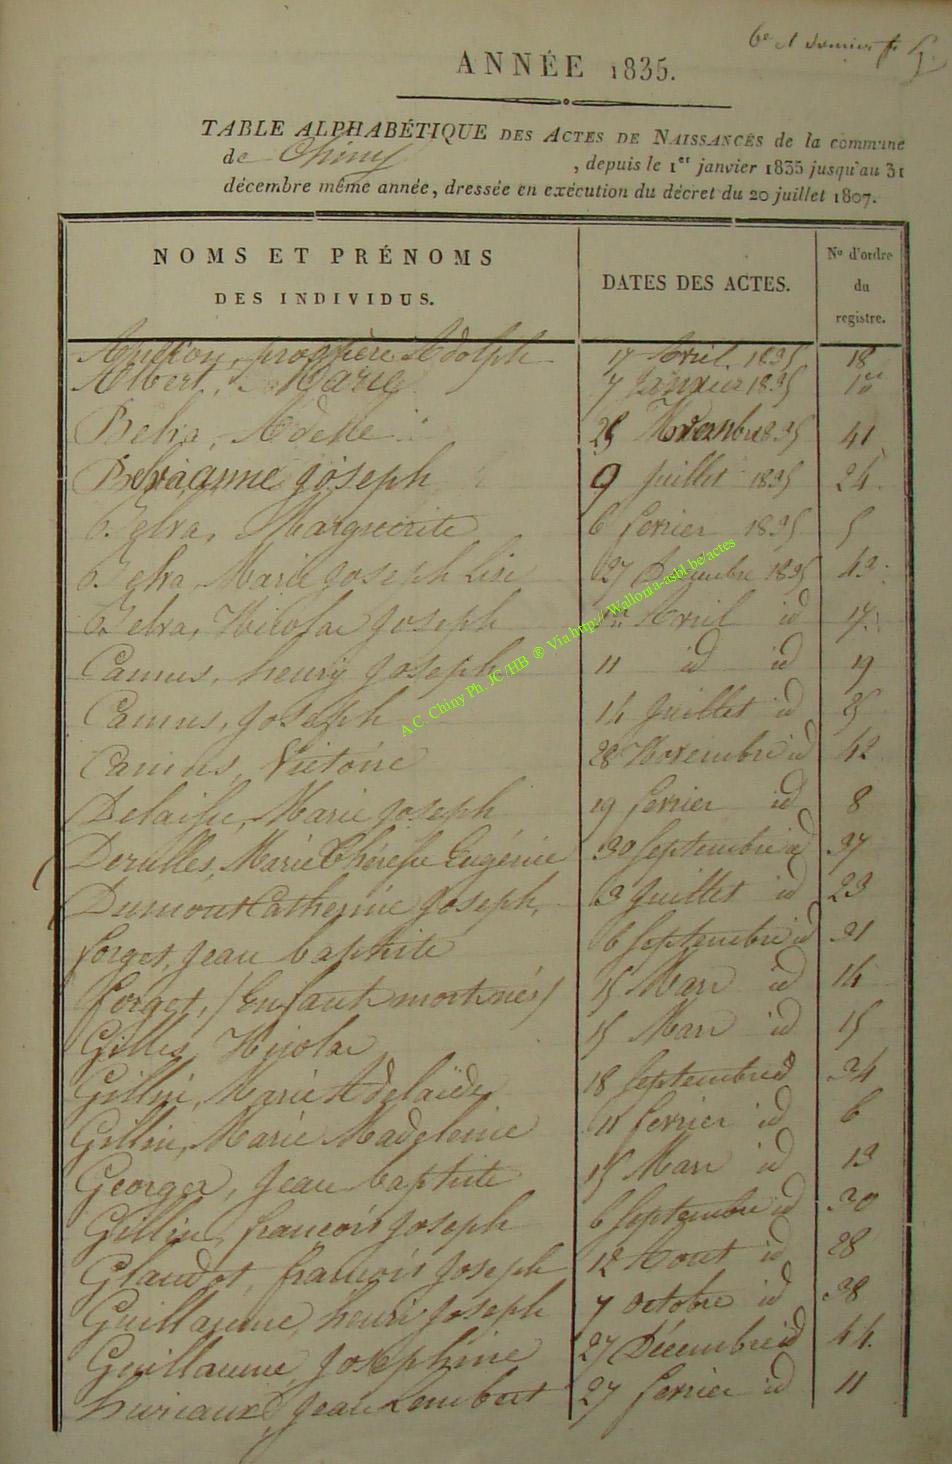 6e et dernier f.
ANNÉE 1835.
TABLE ALPHABÉTIQUE DES ACTES DE NAISSANCES de la commune
de Chiny , depuis le 1er janvier 1835 jusqu'au 31
décembre même année, dressée en exécution du décret du 20 juillet 1807.
NOMS ET PRÉNOMS DES INDIVIDUS. DATES DES ACTES. No d'ordre du registre.
Adolph 17 Avril 1835 18
Albert, Marie 7 Janvier 1835 1er
Belva, Adelle 25 Novembre 1835 41
Belva anne joseph 9 Juillet 1835 24.
Belva, Marguerite 6 fevrier 1835 5
Belva, Marie joseph Lise 27 Décembre 1835 43.
Belva, Nicolas joseph 1er Avril id 17.
Camus, henry joseph 11 id id 19
Camus, joseph 14 Juillet id 25
Camus, Victoire 28 Novembre id 42
Delaisse, Marie joseph 19 fevrier id 8
Derulles, Marie Thérèse Eugénie 30 Septembre id 37
Dumont Catherine joseph, 3 Juillet id 23
forget, jean baptiste 6 Septembre id 31
forget, (enfant mort né) 15 Mars id 14
Gilles, Nicolas 15 Mars id 15
Gillin, Marie Adelaïde 18 Septembre id 34
Gillin, Marie Madeleine 11 fevrier id 6
Georges, jean baptiste 15 Mars id 13
Gillin, francois joseph 6 Septembre id 30
Glaudot, francois joseph 12 Aout id 28
Guillaume, henri joseph 7 Octobre id 38
Guillaume, Josephine 27 Décembre id 44.
huriaux, jean Lambert 27 fevrier id 11
A.C. Chiny Ph. JC/HB ® Via http://Wallonia-asbl.be/actes